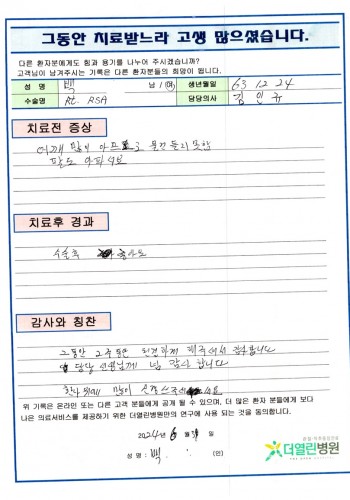 그동안 치료받느라 고생 많으셨습니다.
다른 환자분에게도 힘과 용기를 나누어 주시겠습니까?
고객님이 남겨주시는 기록은 다른 환자분들의 희망이 됩니다.
성 명 백 남 / 여 생년월일 63. 12. 24
수술명 Rt. RSA 담당의사 김인규
치료전 증상
어깨 많이 아프고 물건들지못함
팔도 아파서
치료후 경과
수술후 좋아요
감사와 칭찬
그동안 2주동안 친절하게 해주셔서 감사합니다
담당 선생님께 넘 감사합니다
많이 신경쓰주셔
위 기록은 온라인 또는 다른 고객 분들에게 공개 될 수 있으며, 더 많은 환자 분들에게 보다
나은 의료서비스를 제공하기 위한 더열린병원만의 연구에 사용 되는 것을 동의합니다.
2024년 6월 일
성 명 : 백 (인)
관절·척추중심진료
더열린병원